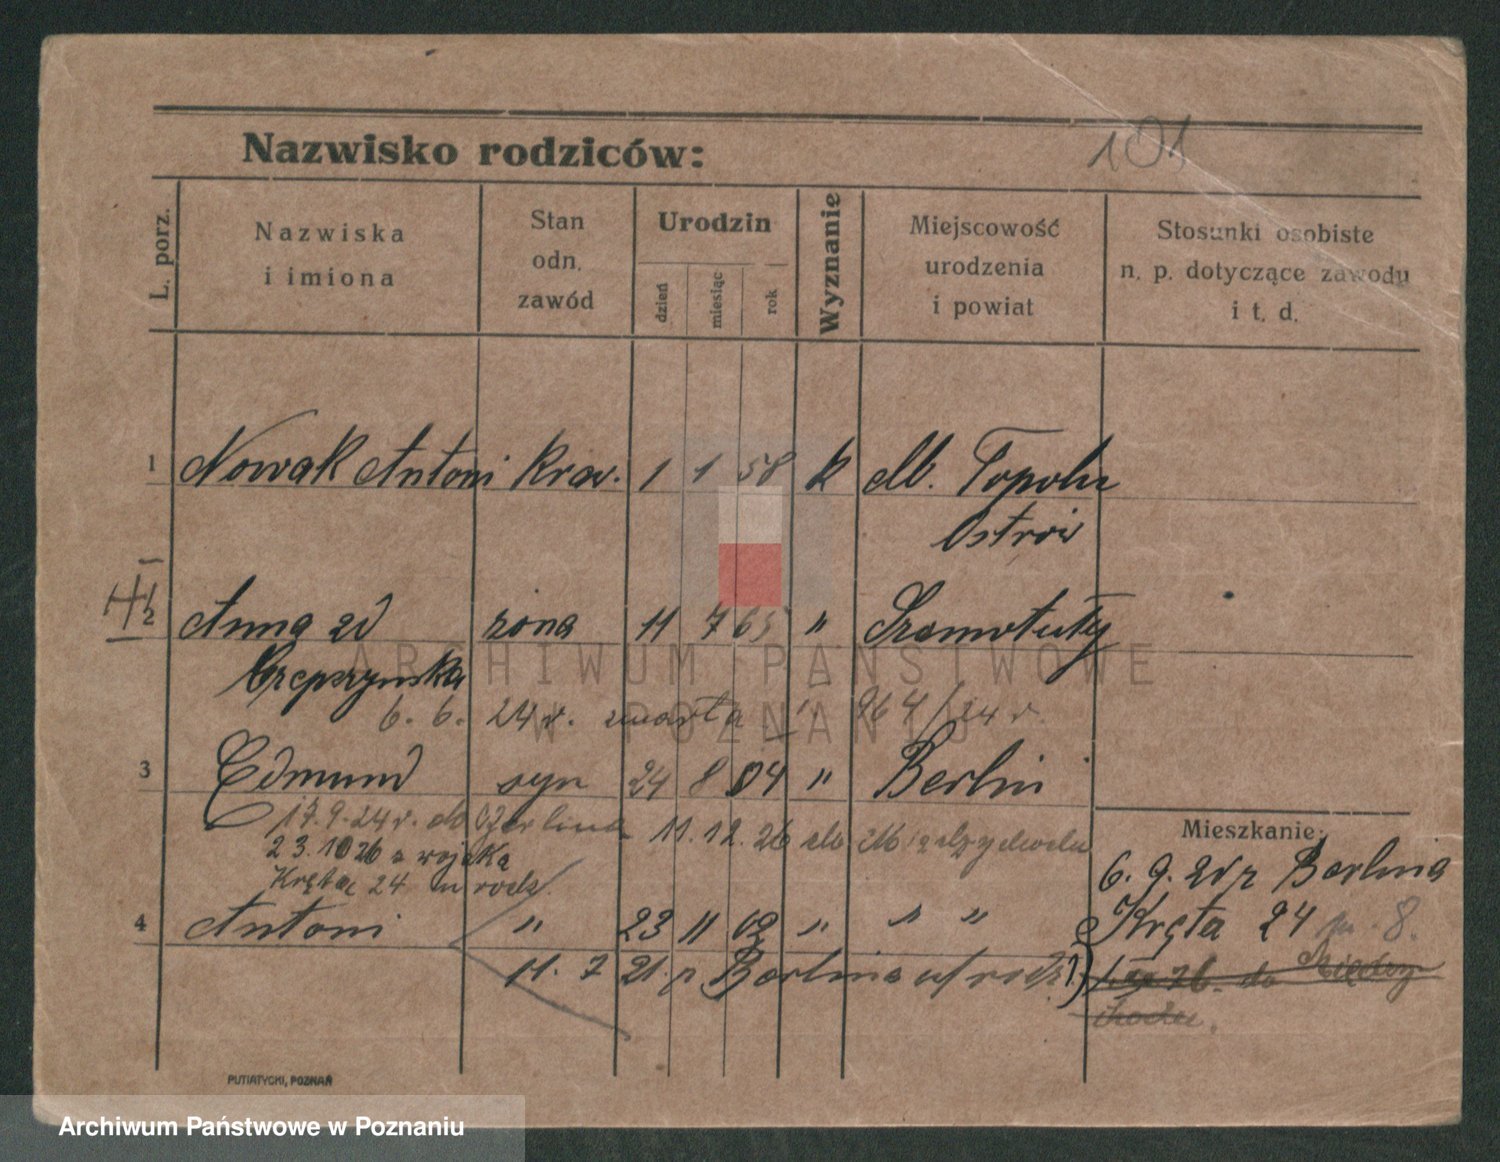 Nazwisko rodziców:
101
L. porz.
Nazwiska
i imiona
Stan
odn.
zawód
Urodzin
dzień
miesiąc
rok
Wyznanie
Miejscowość
urodzenia
i powiat
Stosunki osobiste
n. p. dotyczące zawodu
i t. d.
1 Nowak Antoni kraw. 1 1 58 k M. Topola
Ostrów
2 Anna zd żona 11 7 65 " Szamotuły
ARCHIWUM PAŃSTWOWE
W POZNANIU
6. 6. 24 r. zmarła 964/24 r.
3 Edmund syn 24 8 04 " Berlin
17.9.24 r. do 11.12.26 do
23.1026 z wojska
Kręta 24 u rodz.
Mieszkanie:
6. 9. 21 r z Berlina
Kręta 24 m. 8.
4 Antoni " 23 11 02 " " "
11. 7 21. z Berlina u/rodz.
do
PUTIATYCKI, POZNAŃ
Archiwum Państwowe w Poznaniu